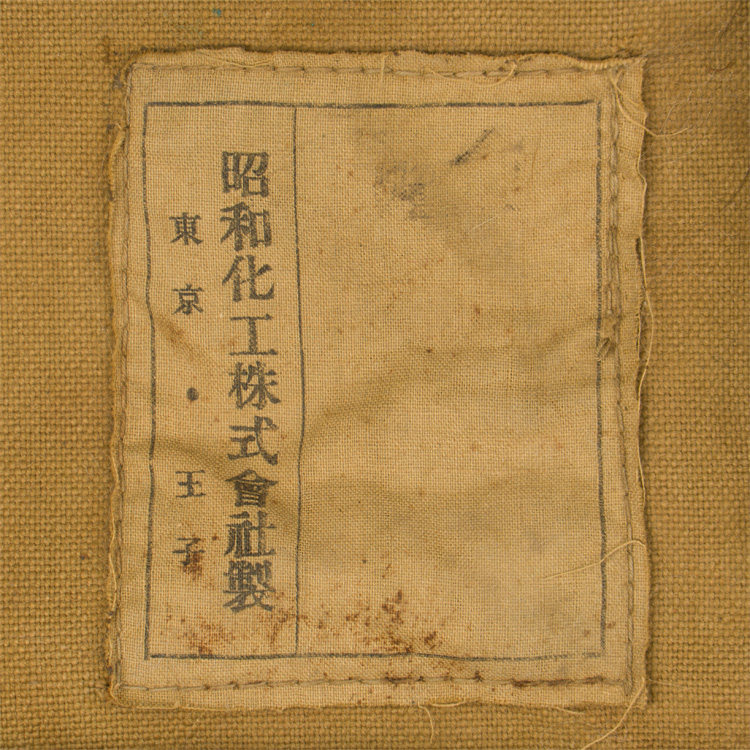 昭和化工株式會社製
東京・王子